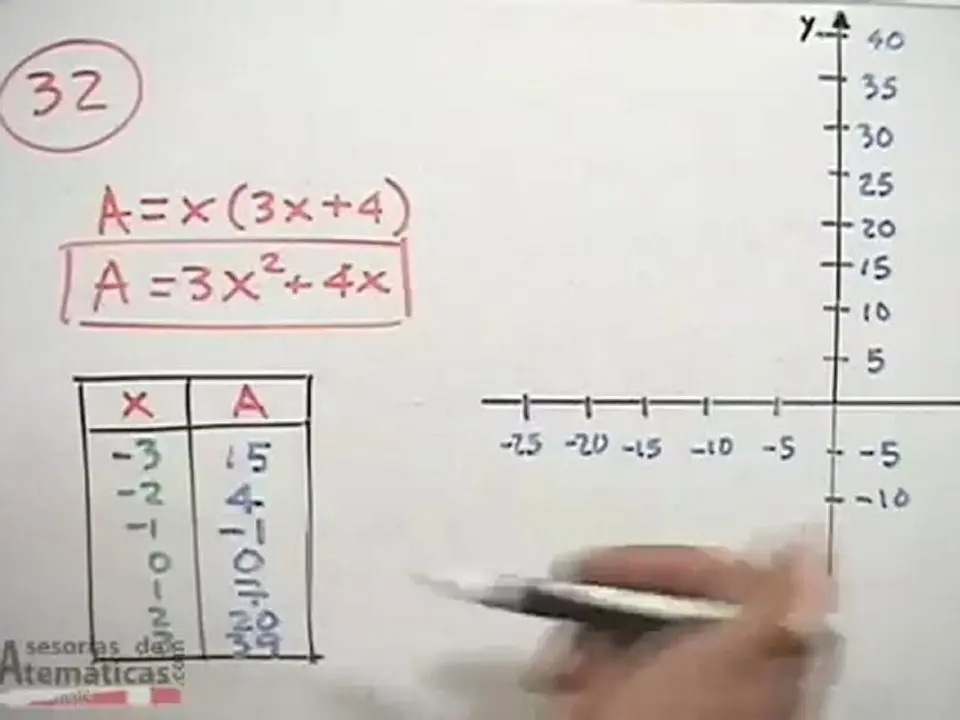 32
A = x(3x+4)
A = 3x²+4x
x A
-3 15
-2 4
-1 -1
0 0
1
2 20
3 39
y
40
35
30
25
20
15
10
5
-25 -20 -15 -10 -5
-5
-10
Asesorias de
Matemáticas.com